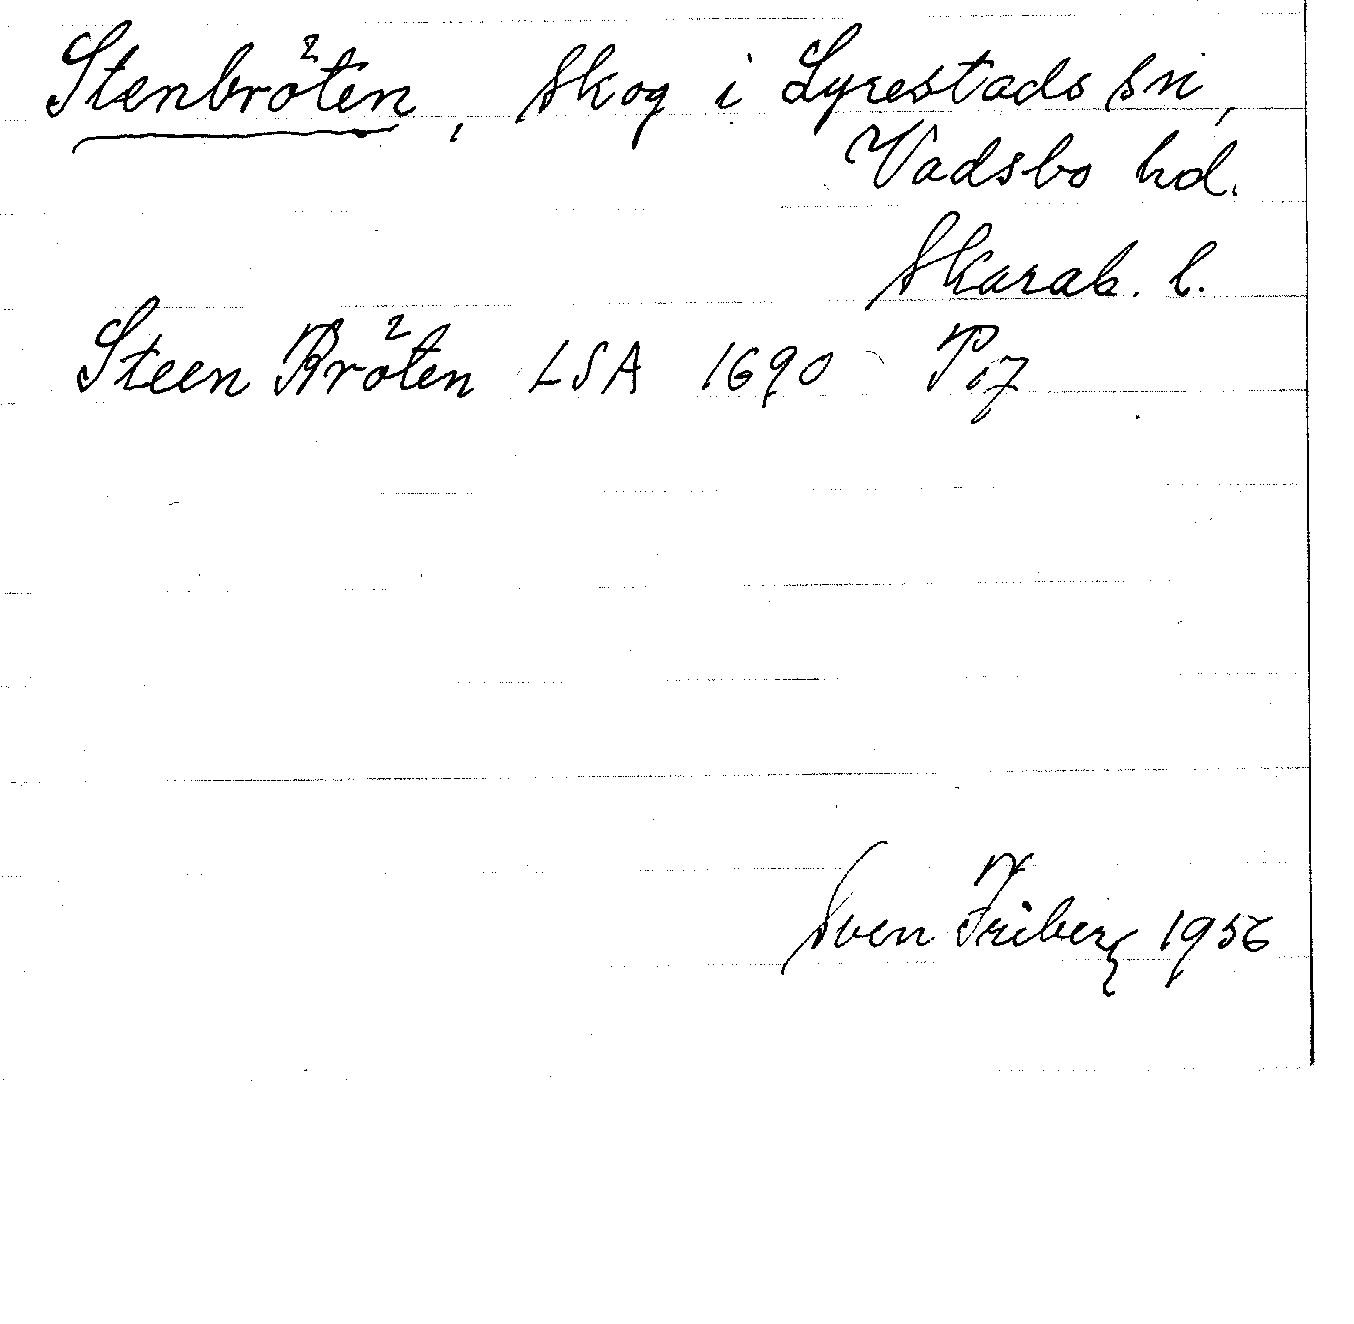 Stenbröten, Skog i Lyrestads sn,
Vadsbo hd.
Skarab. l.
Steen Bröten LSA 1690 P 07
Sven Friberg 1956